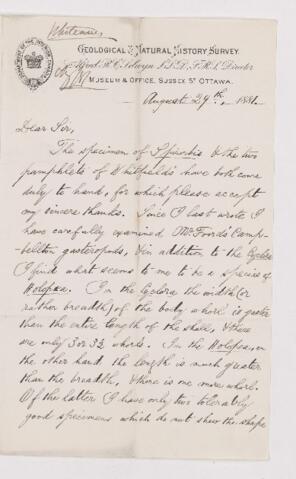 Whiteaves
GEOLOGICAL & NATURAL HISTORY SURVEY.
Alfred R. C. Selwyn L.L.D., F.R.S., Director
MUSEUM & OFFICE, SUSSEX ST OTTAWA.
August 29th, 1881.
Dear Sir,
The specimen of Spirorbis & the two
pamphlets of Whitfield's have both come
duly to hand, for which please accept
my sincere thanks. Since I last wrote I
have carefully examined Mr Foord's Camp-
bellton gasteropods, & in addition to the Cyclora
I find what seems to me to be a species of
Holopea. In the Cyclora the width (or
rather breadth) of the body whorl is greater
than the entire length of the shell, & there
are only 3 or 3½ whorls. In the Holopea, on
the other hand the length is much greater
than the breadth, & there is one more whorl.
Of the latter I have only two tolerably
good specimens which do not show the shape